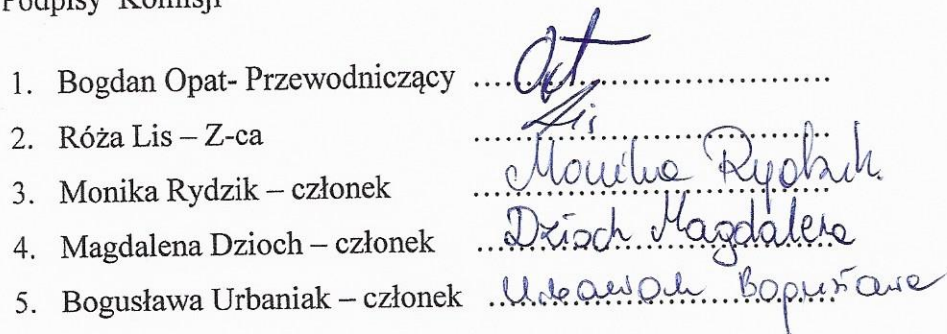 Podpisy Komisji
1. Bogdan Opat- Przewodniczący ....Opt....
2. Róża Lis – Z-ca ....Lis....
3. Monika Rydzik – członek ....Monika Rydzik....
4. Magdalena Dzioch – członek ....Dzioch Magdalena
5. Bogusława Urbaniak – członek ....Urbaniak Bogusława